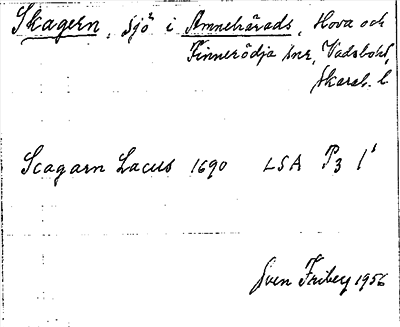 Skagern, sjö i Amnehärads, Hova och
Finnerödja snr, Vadsbohd,
Skarab. l.
Scagarn Lacus 1690 LSA P3 1
Sven Friberg 1956